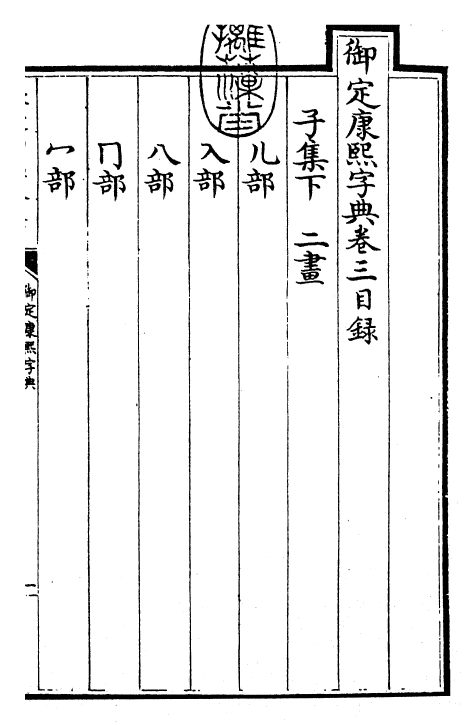 御定康熙字典卷三目録
子集下 二畫
儿部
入部
八部
冂部
冖部
御定康熙字典